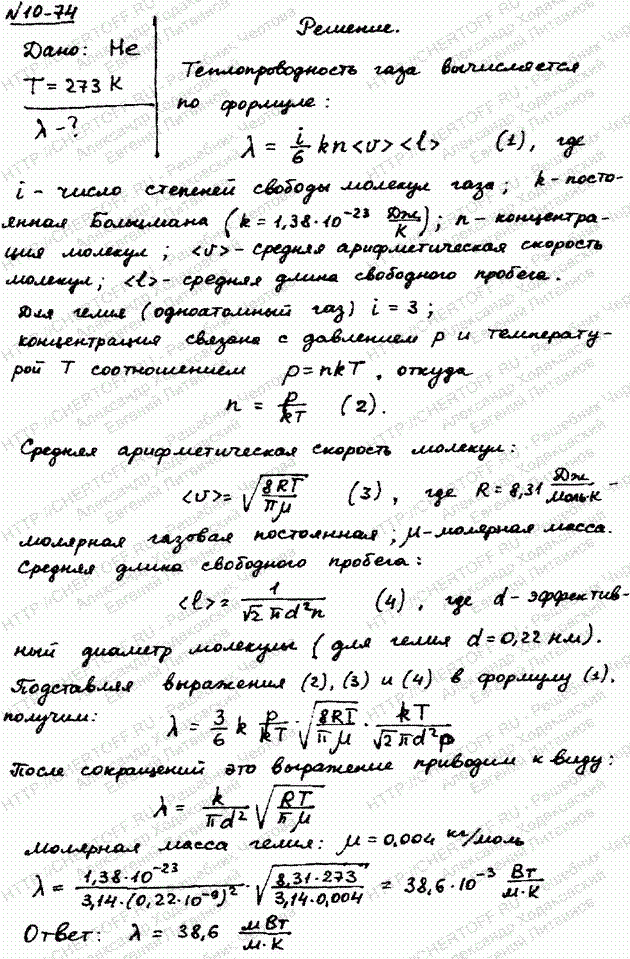 №10-74
Решение.
Дано: He
T = 273 K
λ - ?
Теплопроводность газа вычисляется
по формуле:
λ = i/6 kn<v><l> (1), где
i - число степеней свободы молекул газа; k - посто-
янная Больцмана (k = 1,38·10⁻²³ Дж/К); n - концентра-
ция молекул; <v> - средняя арифметическая скорость
молекул; <l> - средняя длина свободного пробега.
Для гелия (одноатомный газ) i = 3;
концентрация связана с давлением p и температу-
рой T соотношением p = nkT, откуда
n = p/kT (2).
Средняя арифметическая скорость молекул:
<v> = √(8RT/πμ) (3), где R = 8,31 Дж/моль·К -
молярная газовая постоянная; μ - молярная масса.
Средняя длина свободного пробега:
<l> = 1/(√2 πd²n) (4), где d - эффектив-
ный диаметр молекулы (для гелия d = 0,22 нм).
Подставляя выражения (2), (3) и (4) в формулу (1),
получим: λ = 3/6 k p/kT · √(8RT/πμ) · kT/(√2 πd²p)
После сокращений это выражение приводим к виду:
λ = k/πd² √(RT/πμ)
Молярная масса гелия: μ = 0,004 кг/моль
λ = 1,38·10⁻²³/(3,14·(0,22·10⁻⁹)²) · √(8,31·273/(3,14·0,004)) = 38,6·10⁻³ Вт/м·К
Ответ: λ = 38,6 мВт/м·К
HTTP://CHERTOFF.RU - Решебник Чертова
Александр Ходаковский
Евгений Литвинов